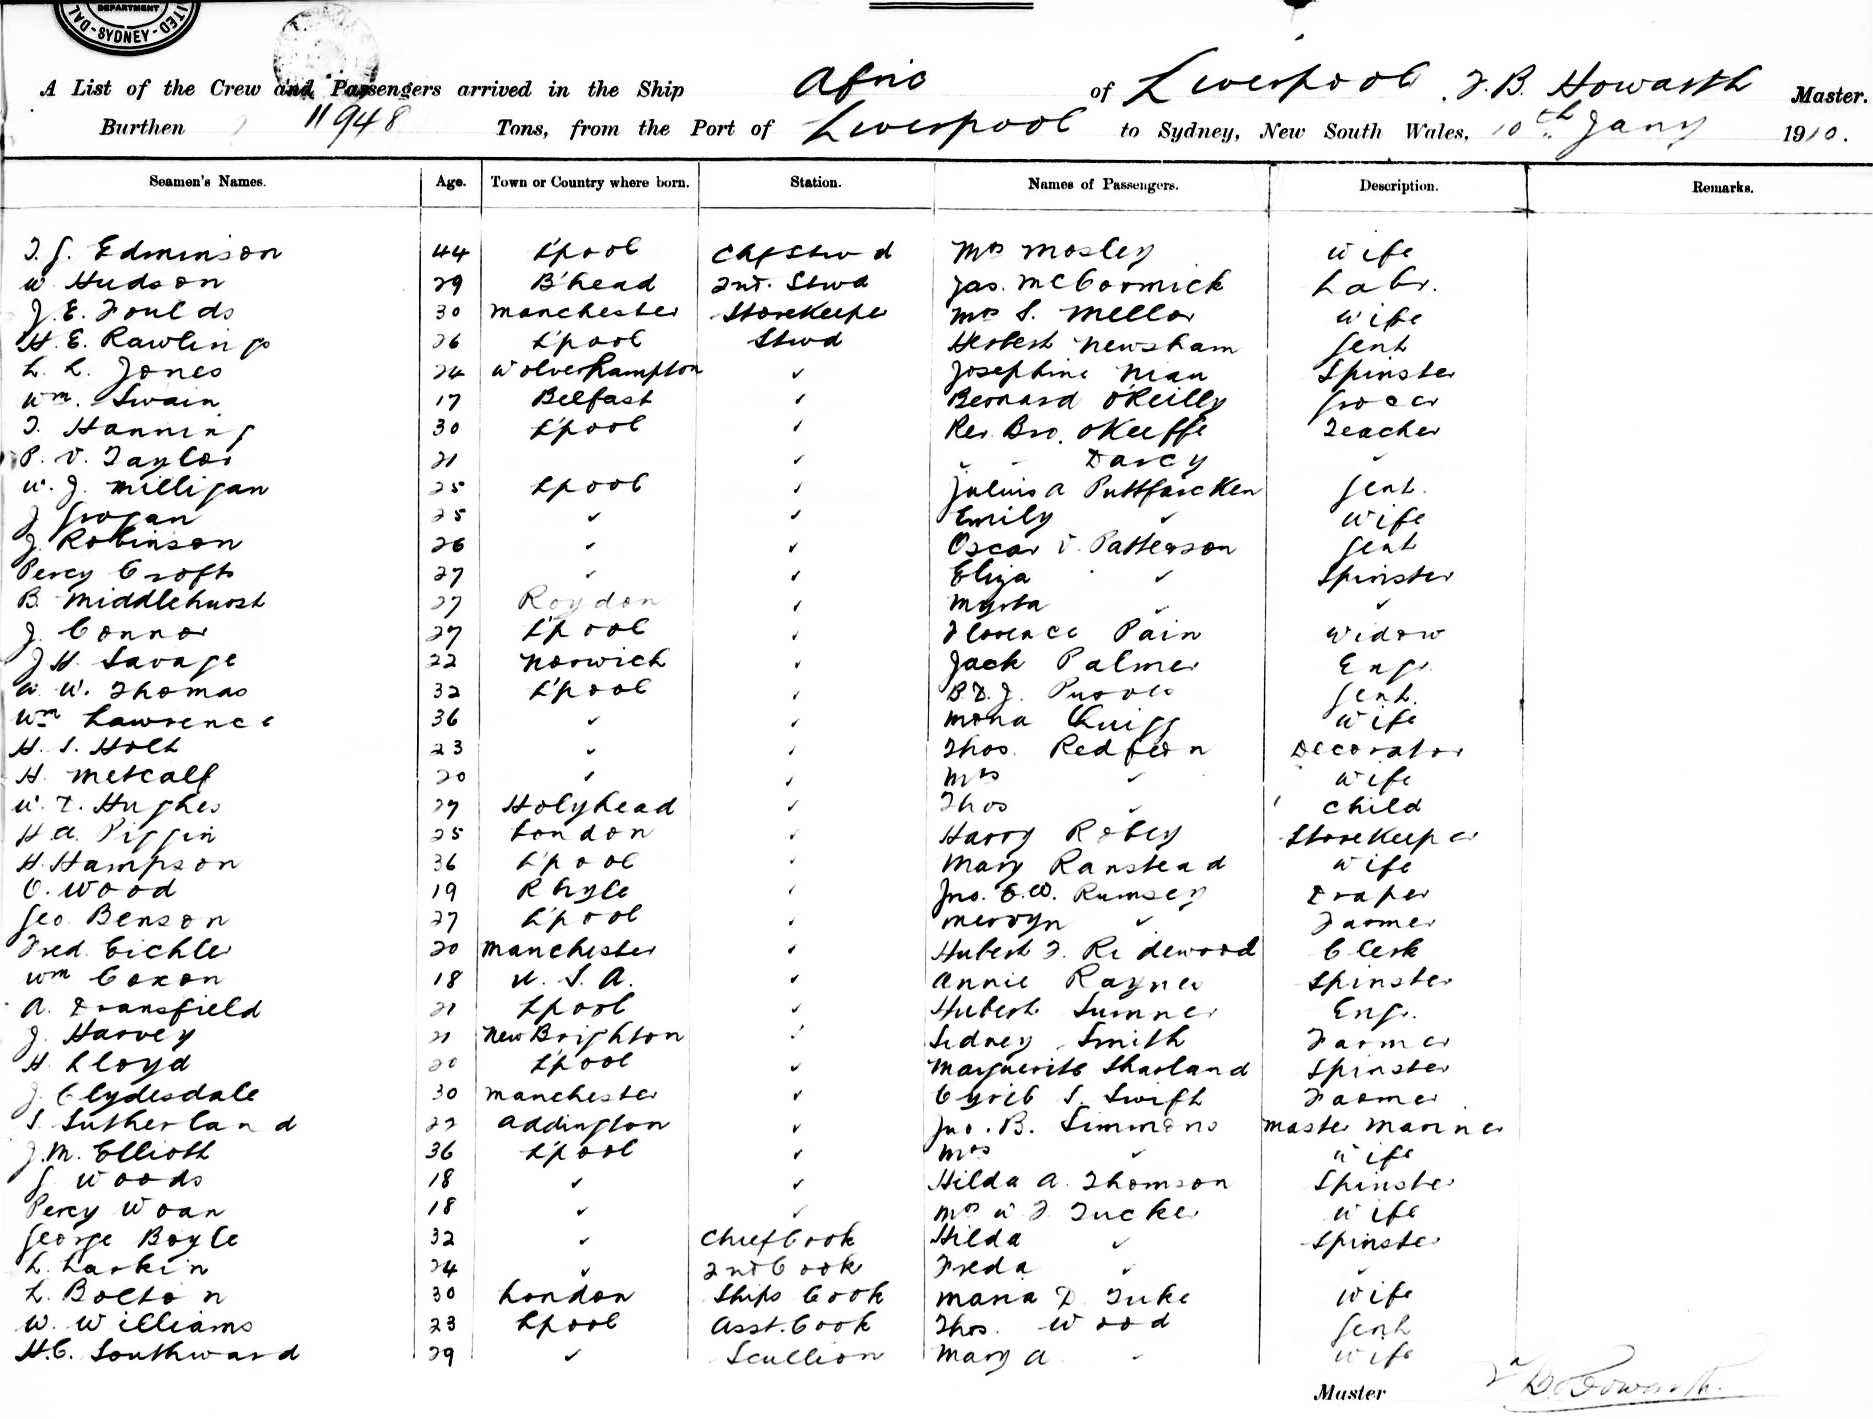 DEPARTMENT
SYDNEY
A List of the Crew and Passengers arrived in the Ship Afric of Liverpool, T. B. Howarth Master.
Burthen 11948 Tons, from the Port of Liverpool to Sydney, New South Wales, 10th Jany 1910.
Seamen's Names. Age. Town or Country where born. Station. Names of Passengers. Description. Remarks.
T. J. Edminson 44 L'pool Chf Stwd Mrs Mosley Wife
W. Hudson 29 B'head 2nd. Stwd Jas. McCormick Labr.
J. E. Foulds 30 Manchester Storekeeper Mrs S. Mellor Wife
H. E. Rawlings 26 L'pool Stwd Herbert Newsham Gent
L. L. Jones 24 Wolverhampton ✓ Josephine Nian Spinster
Wm. Swain 17 Belfast ✓ Bernard O'Reilly Grocer
T. Hanning 30 L'pool ✓ Rev. Bro. OKeeffe Teacher
P. V. Taylor 21 ✓ Darcy ✓
W. J. Milligan 25 L'pool ✓ Julius A Puttfarcken Gent.
J Grogan 25 ✓ ✓ Emily ✓ Wife
J. Robinson 26 ✓ ✓ Oscar V. Patterson Gent
Percy Croft 27 ✓ ✓ Eliza ✓ Spinster
B. Middlehurst 27 Roydon ✓ Myrta ✓ ✓
J. Connor 27 L'pool ✓ Florence Pain Widow
J H. Savage 22 Norwich ✓ Jack Palmer Engr.
W. W. Thomas 32 L'pool ✓ B. D. J. Purves Gent.
Wm Lawrence 36 ✓ ✓ Mona Quigg Wife
H. S. Holt 23 ✓ ✓ Thos. Redfern Decorator
H. Metcalf 20 ✓ ✓ Mrs ✓ Wife
W. T. Hughes 27 Holyhead ✓ Thos ✓ Child
H. A. Piggin 25 London ✓ Harry Robey Storekeeper
H. Hampson 36 L'pool ✓ Mary Ranstead Wife
C. Wood 19 Rhyle ✓ Jno. C. W. Rumsey Draper
Geo. Benson 27 L'pool ✓ Mervyn ✓ Farmer
Fred. Eichler 20 Manchester ✓ Hubert F. Ridewood Clerk
Wm Coxon 18 U. S. A. ✓ Annie Rayner Spinster
A. Dransfield 21 L'pool ✓ Hubert Sumner Engr.
J. Harvey 21 New Brighton ✓ Sidney Smith Farmer
H. Lloyd 20 L'pool ✓ Marguerite Sharland Spinster
J. Clydesdale 30 Manchester ✓ Cyril S. Swift Farmer
S. Sutherland 22 Addington ✓ Jno. B. Simmons Master Mariner
J. M. Elliott 36 L'pool ✓ Mrs ✓ Wife
G. Woods 18 ✓ ✓ Hilda A. Thomson Spinster
Percy Woan 18 ✓ ✓ Mrs W F. Tucker Wife
George Boyle 32 ✓ Chief Cook Hilda ✓ Spinster
L. Larkin 24 ✓ 2nd Cook Freda ✓ ✓
L. Bolton 30 London Ships Cook Maria D. Tuke Wife
W. Williams 23 L'pool Asst. Cook Thos. Wood Gent
H. C. Southward 29 ✓ Scullion Mary A ✓ Wife
Master T. B. Howarth.